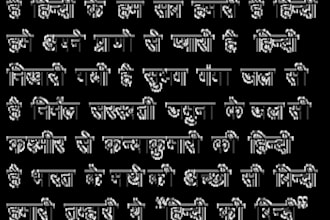 है हिन्दी के हम सब हमारे है हिन्दी
हमे अपने प्राणों से प्यारी है हिन्दी
निखरी यमी है सुषमा गंगा जल सी
है निर्मल सरस्वती जमुना के जल सी
कश्मीर से कन्याकुमारी की हिन्दी
है भारत के माथे की अच्छी सी बिन्दी
हमारी तुम्हारी ये "हिन्दी की हिन्दी"